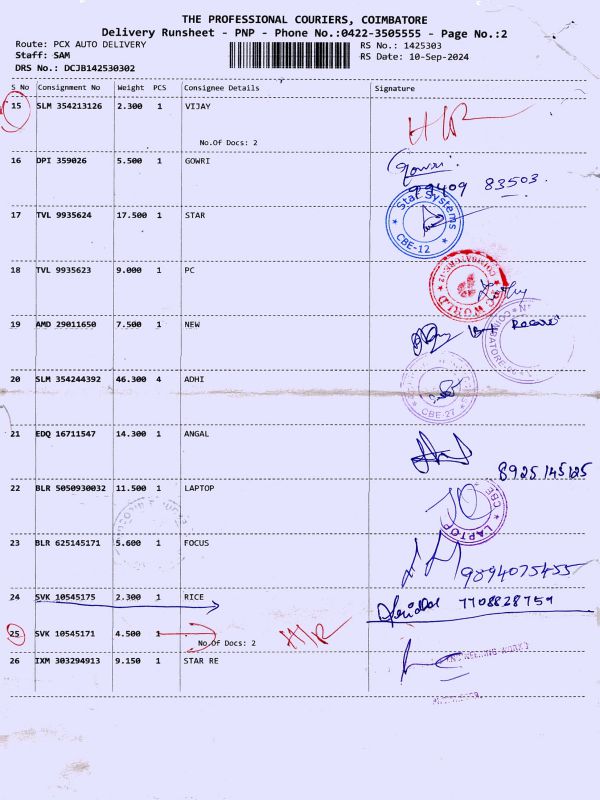 THE PROFESSIONAL COURIERS, COIMBATORE
Delivery Runsheet - PNP - Phone No.:0422-3505555 - Page No.:2
Route: PCX AUTO DELIVERY
RS No.: 1425303
Staff: SAM
RS Date: 10-Sep-2024
DRS No.: DCJB142530302
S No Consignment No Weight PCS Consignee Details Signature
15 SLM 354213126 2.300 1 VIJAY
No.Of Docs: 2
16 DPI 359026 5.500 1 GOWRI Gowri.
99409 83503.
17 TVL 9935624 17.500 1 STAR Star Systems CBE-12
18 TVL 9935623 9.000 1 PC P.C. WORLD COIMBATORE-12
19 AMD 29011650 7.500 1 NEW COIMBATORE
20 SLM 354244392 46.300 4 ADHI CBE-27
21 EDQ 16711547 14.300 1 ANGAL
8925145125
22 BLR 5050930032 11.500 1 LAPTOP LAPTOP CBE
23 BLR 625145171 5.600 1 FOCUS 9894075455
24 SVK 10545175 2.300 1 RICE 7708828759
25 SVK 10545171 4.500 1
No.Of Docs: 2
26 IXM 303294913 9.150 1 STAR RE